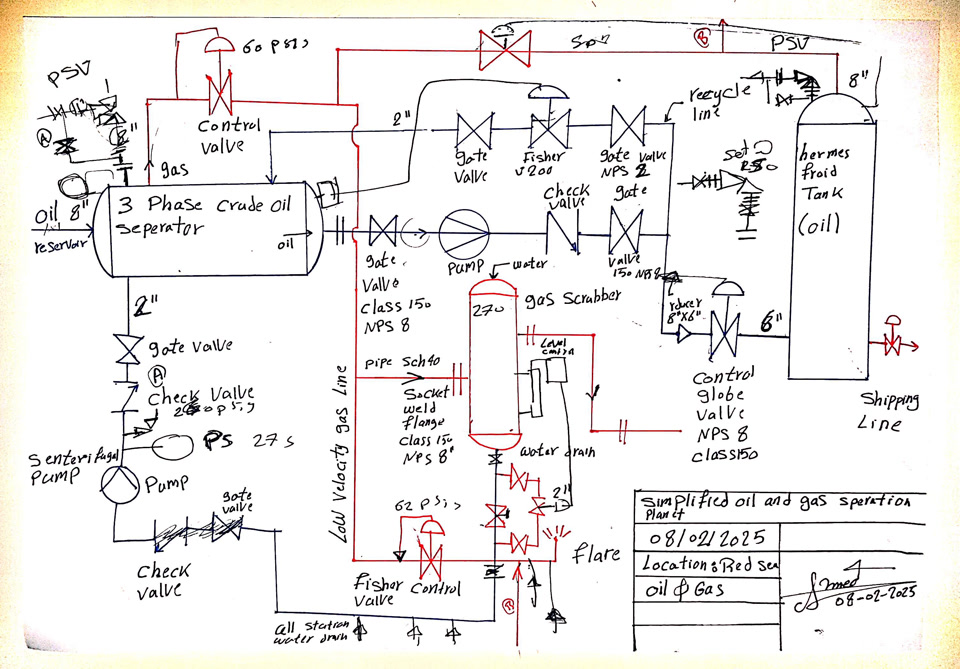 PSV
60 psig
B
PSV
8"
A
8"
Control
valve
gas
2"
gate
valve
Fisher
gate valve
NPS 2
recycle
line
hermes
froid
Tank
(oil)
Set
oil 8"
reservoir
3 Phase crude oil
seperator
oil
Check
valve
gate
valve
150 NPS 8
gate
valve
class 150
NPS 8
Pump
water
gas scrubber
270
8"x6"
6"
Control
globe
valve
NPS 8
class150
Shipping
Line
2"
gate valve
A
Check valve
psig
PS 275
Senterifugal
Pump
Pump
gate
valve
Check
valve
Low velocity gas Line
pipe Sch40
Socket
weld
flange
class 150
NPS 8"
Level
control
water drain
2"
62 psig
Fisher Control
valve
flare
B
Cell station
water drain
Simplified oil and gas speration
Planet
08/02/2025
Location: Red sea
oil & Gas
08-02-2025